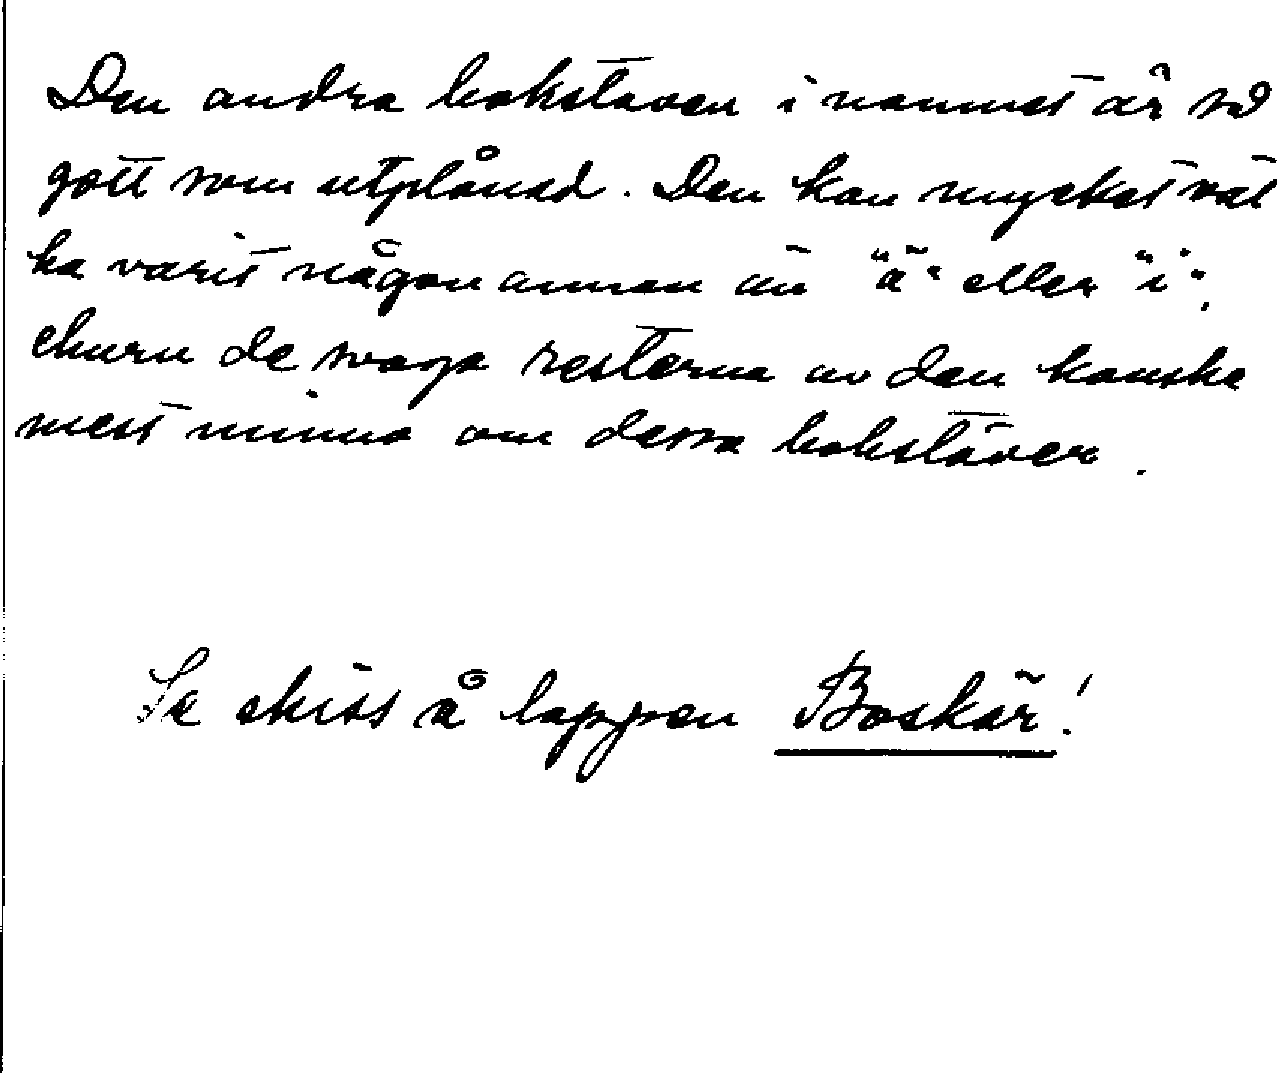 Den andra bokstaven i namnet är så
gott som utplånad. Den kan mycket väl
ha varit någon annan än "ä" eller "i",
ehuru de svaga resterna av den kanske
mest minna om dessa bokstäver.
Se skiss å lappen Boskär!